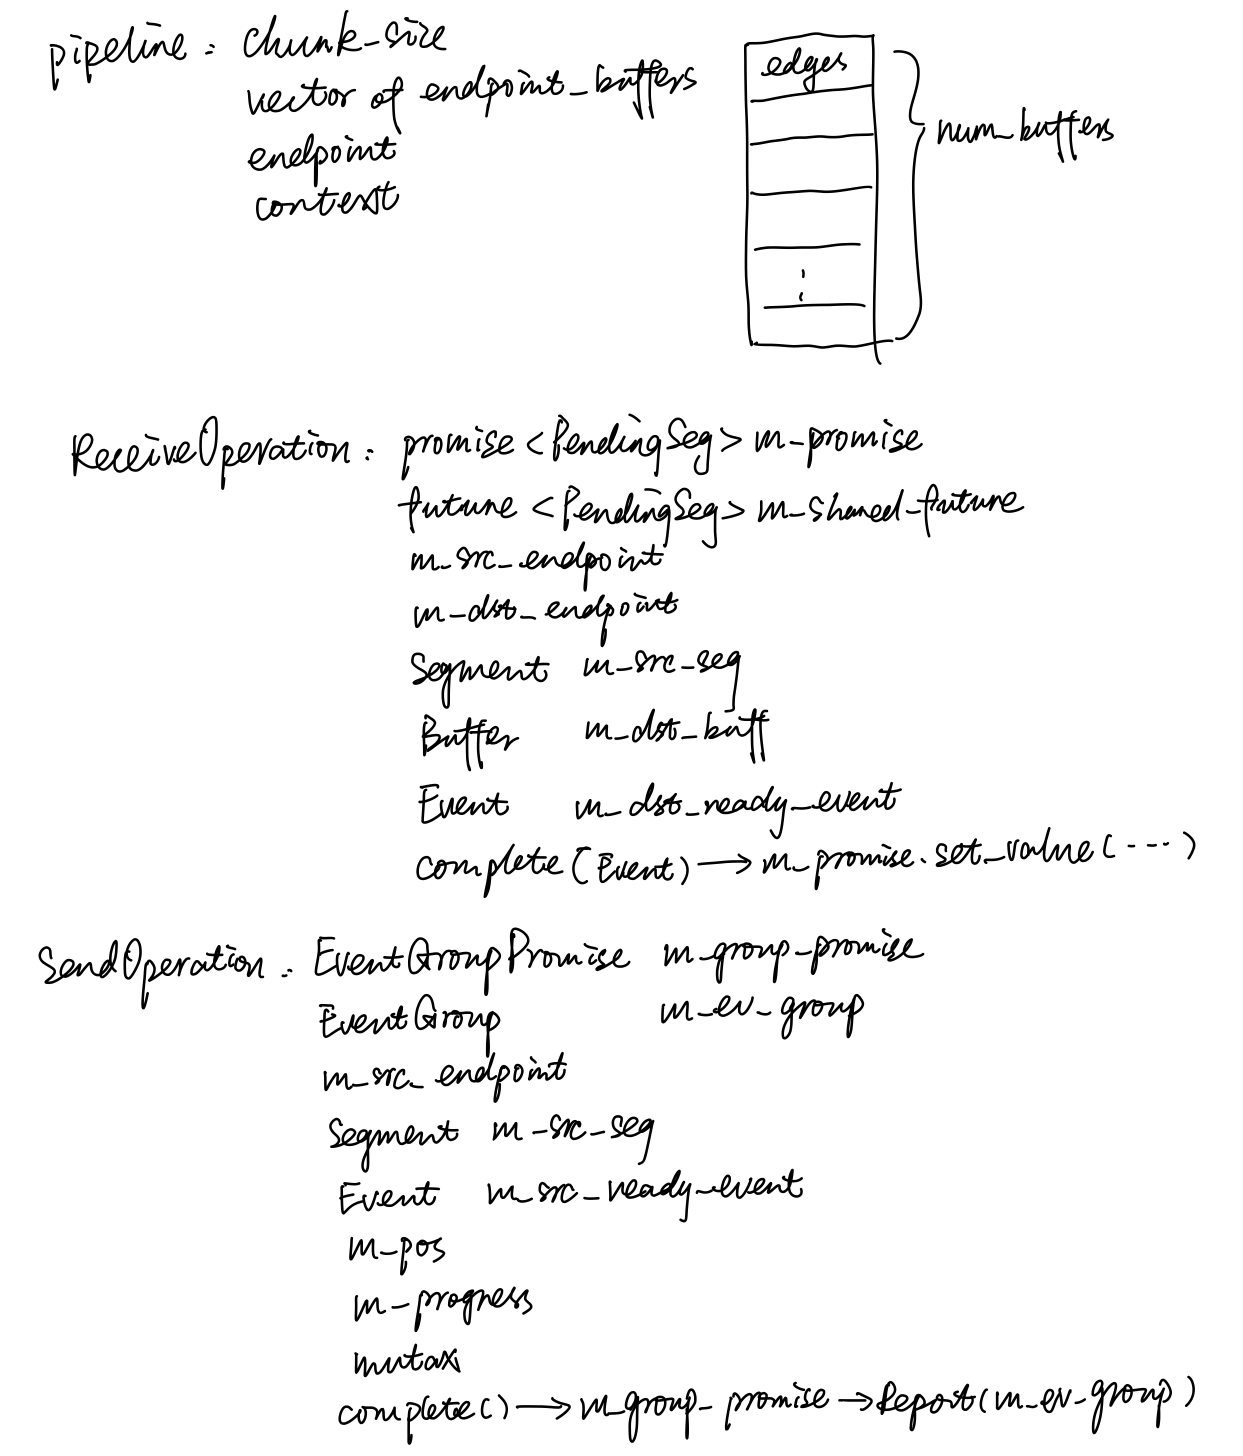 pipeline : chunk_size
vector of endpoint_buffers
endpoint
context
edges
num_buffers
ReceiveOperation : promise <PendingSeg> m_promise
future <PendingSeg> m_shared_future
m_src_endpoint
m_dst_endpoint
Segment m_src_seg
Buffer m_dst_buff
Event m_dst_ready_event
complete (Event) → m_promise.set_value(---)
SendOperation : EventGroupPromise m_group_promise
EventGroup m_ev_group
m_src_endpoint
Segment m_src_seg
Event m_src_ready_event
m_pos
m_progress
mutax
complete() → m_group_promise → Report(m_ev_group)